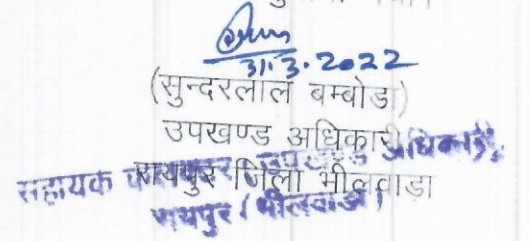 31.3.2022
(सुन्दरलाल बम्बोडा)
उपखण्ड अधिकारी
रायपुर जिला भीलवाडा
सहायक उपखण्ड अधिकारी,
रायपुर (भीलवाडा)